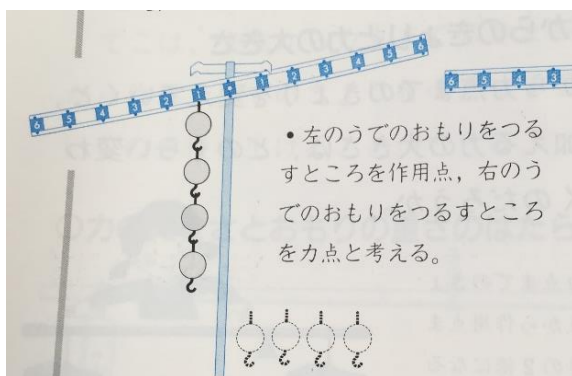 6 5 4 3 2 1 1 2 3 4 5 6
6 5 4 3
• 左のうでのおもりをつる
すところを作用点，右のう
でのおもりをつるすところ
を力点と考える。